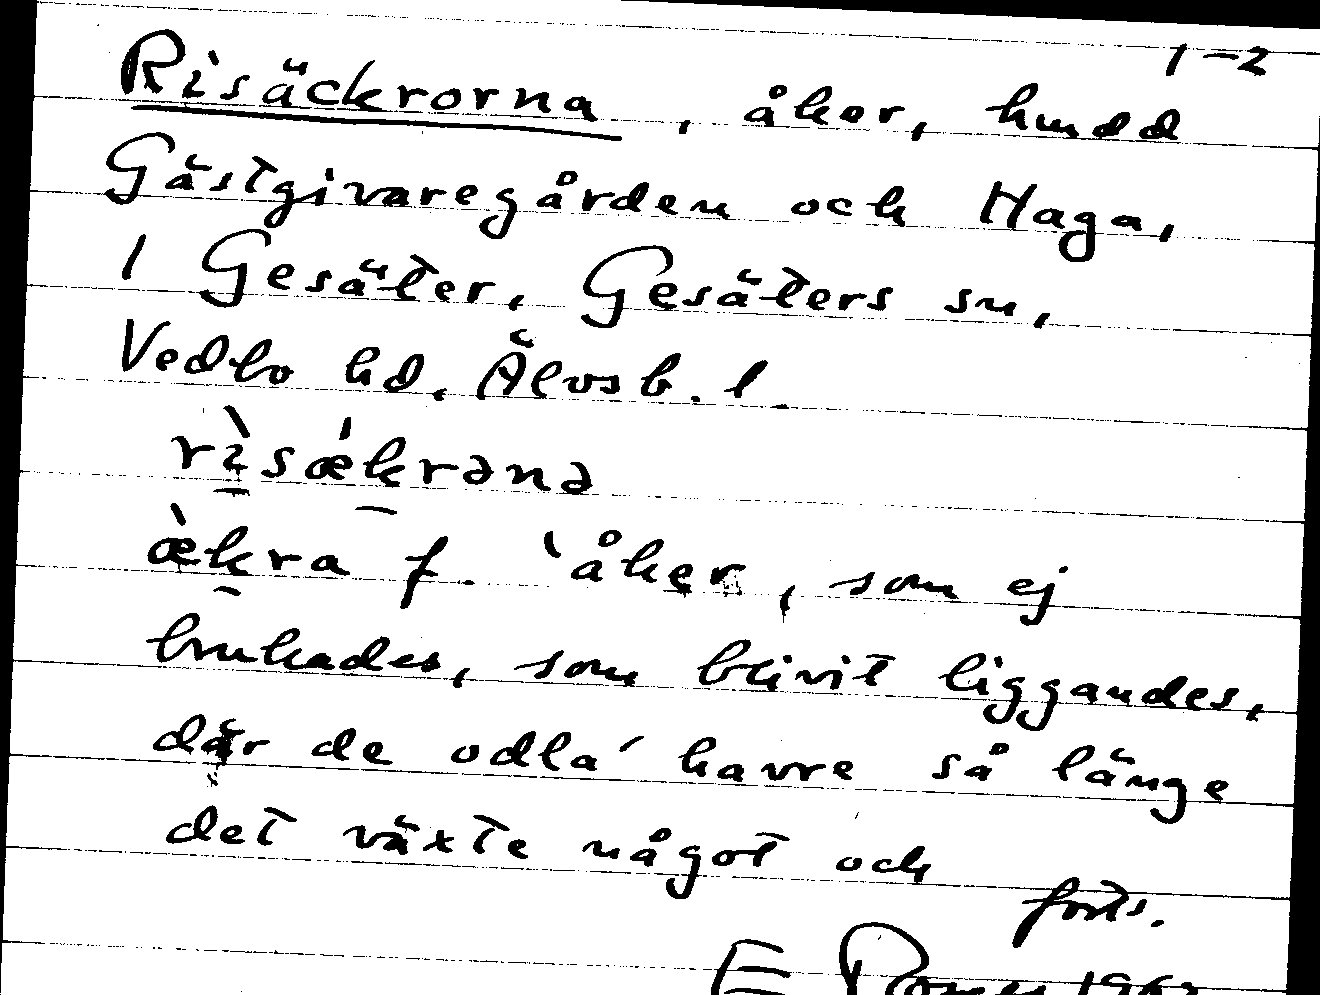 1-2
Risäckrorna, åker, hundd
Gästgivaregården och Haga,
1 Gesäter, Gesäters sn,
Vedbo hd, Älvsb. l.
rìsǽkrənə
æ̀kra f. 'åker, som ej
brukades, som blivit liggandes,
där de odla' havre så länge
det växte något och
forts.
E